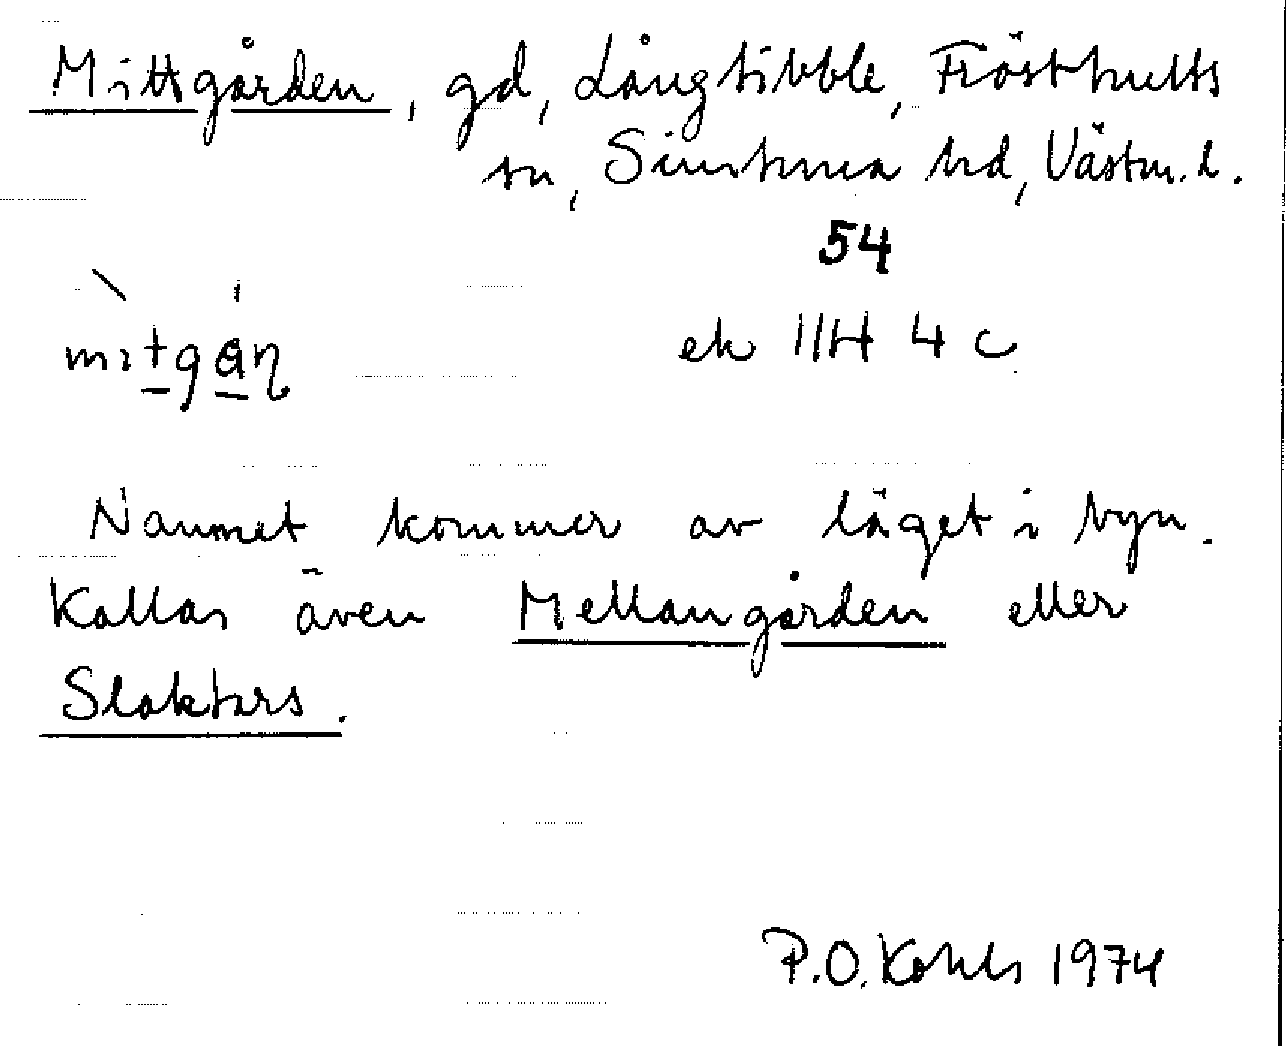 Mittgården, gd, Långtibble, Frösthults
sn, Simtuna hd, Västm. l.
54
mitgån
ek 11H 4c
Namnet kommer av läget i byn.
Kallas även Mellangården eller
Slaktars.
P.O. 1974